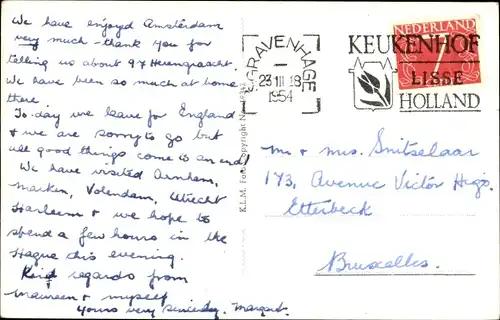 We have enjoyed Amsterdam
very much - thank you for
telling us about 97 Heerengracht.
We have been so much at home
there.
To-day we leave for England
& we are sorry to go but
all good things come to an end!
We have visited Arnhem,
Marken, Volendam, Utrecht
Haarlem & we hope to
spend a few hours in the
Hague this evening.
Kind regards from
Maureen & myself
Yours very sincerely. Margaret.
K.L.M. Foto Copyright No.
'S GRAVENHAGE
23 III 18
1954
NEDERLAND
7
KEUKENHOF
LISSE
HOLLAND
Mr & Mrs. Snitselaar
173, Avenue Victor Hugo,
Etterbeck
Bruxelles.